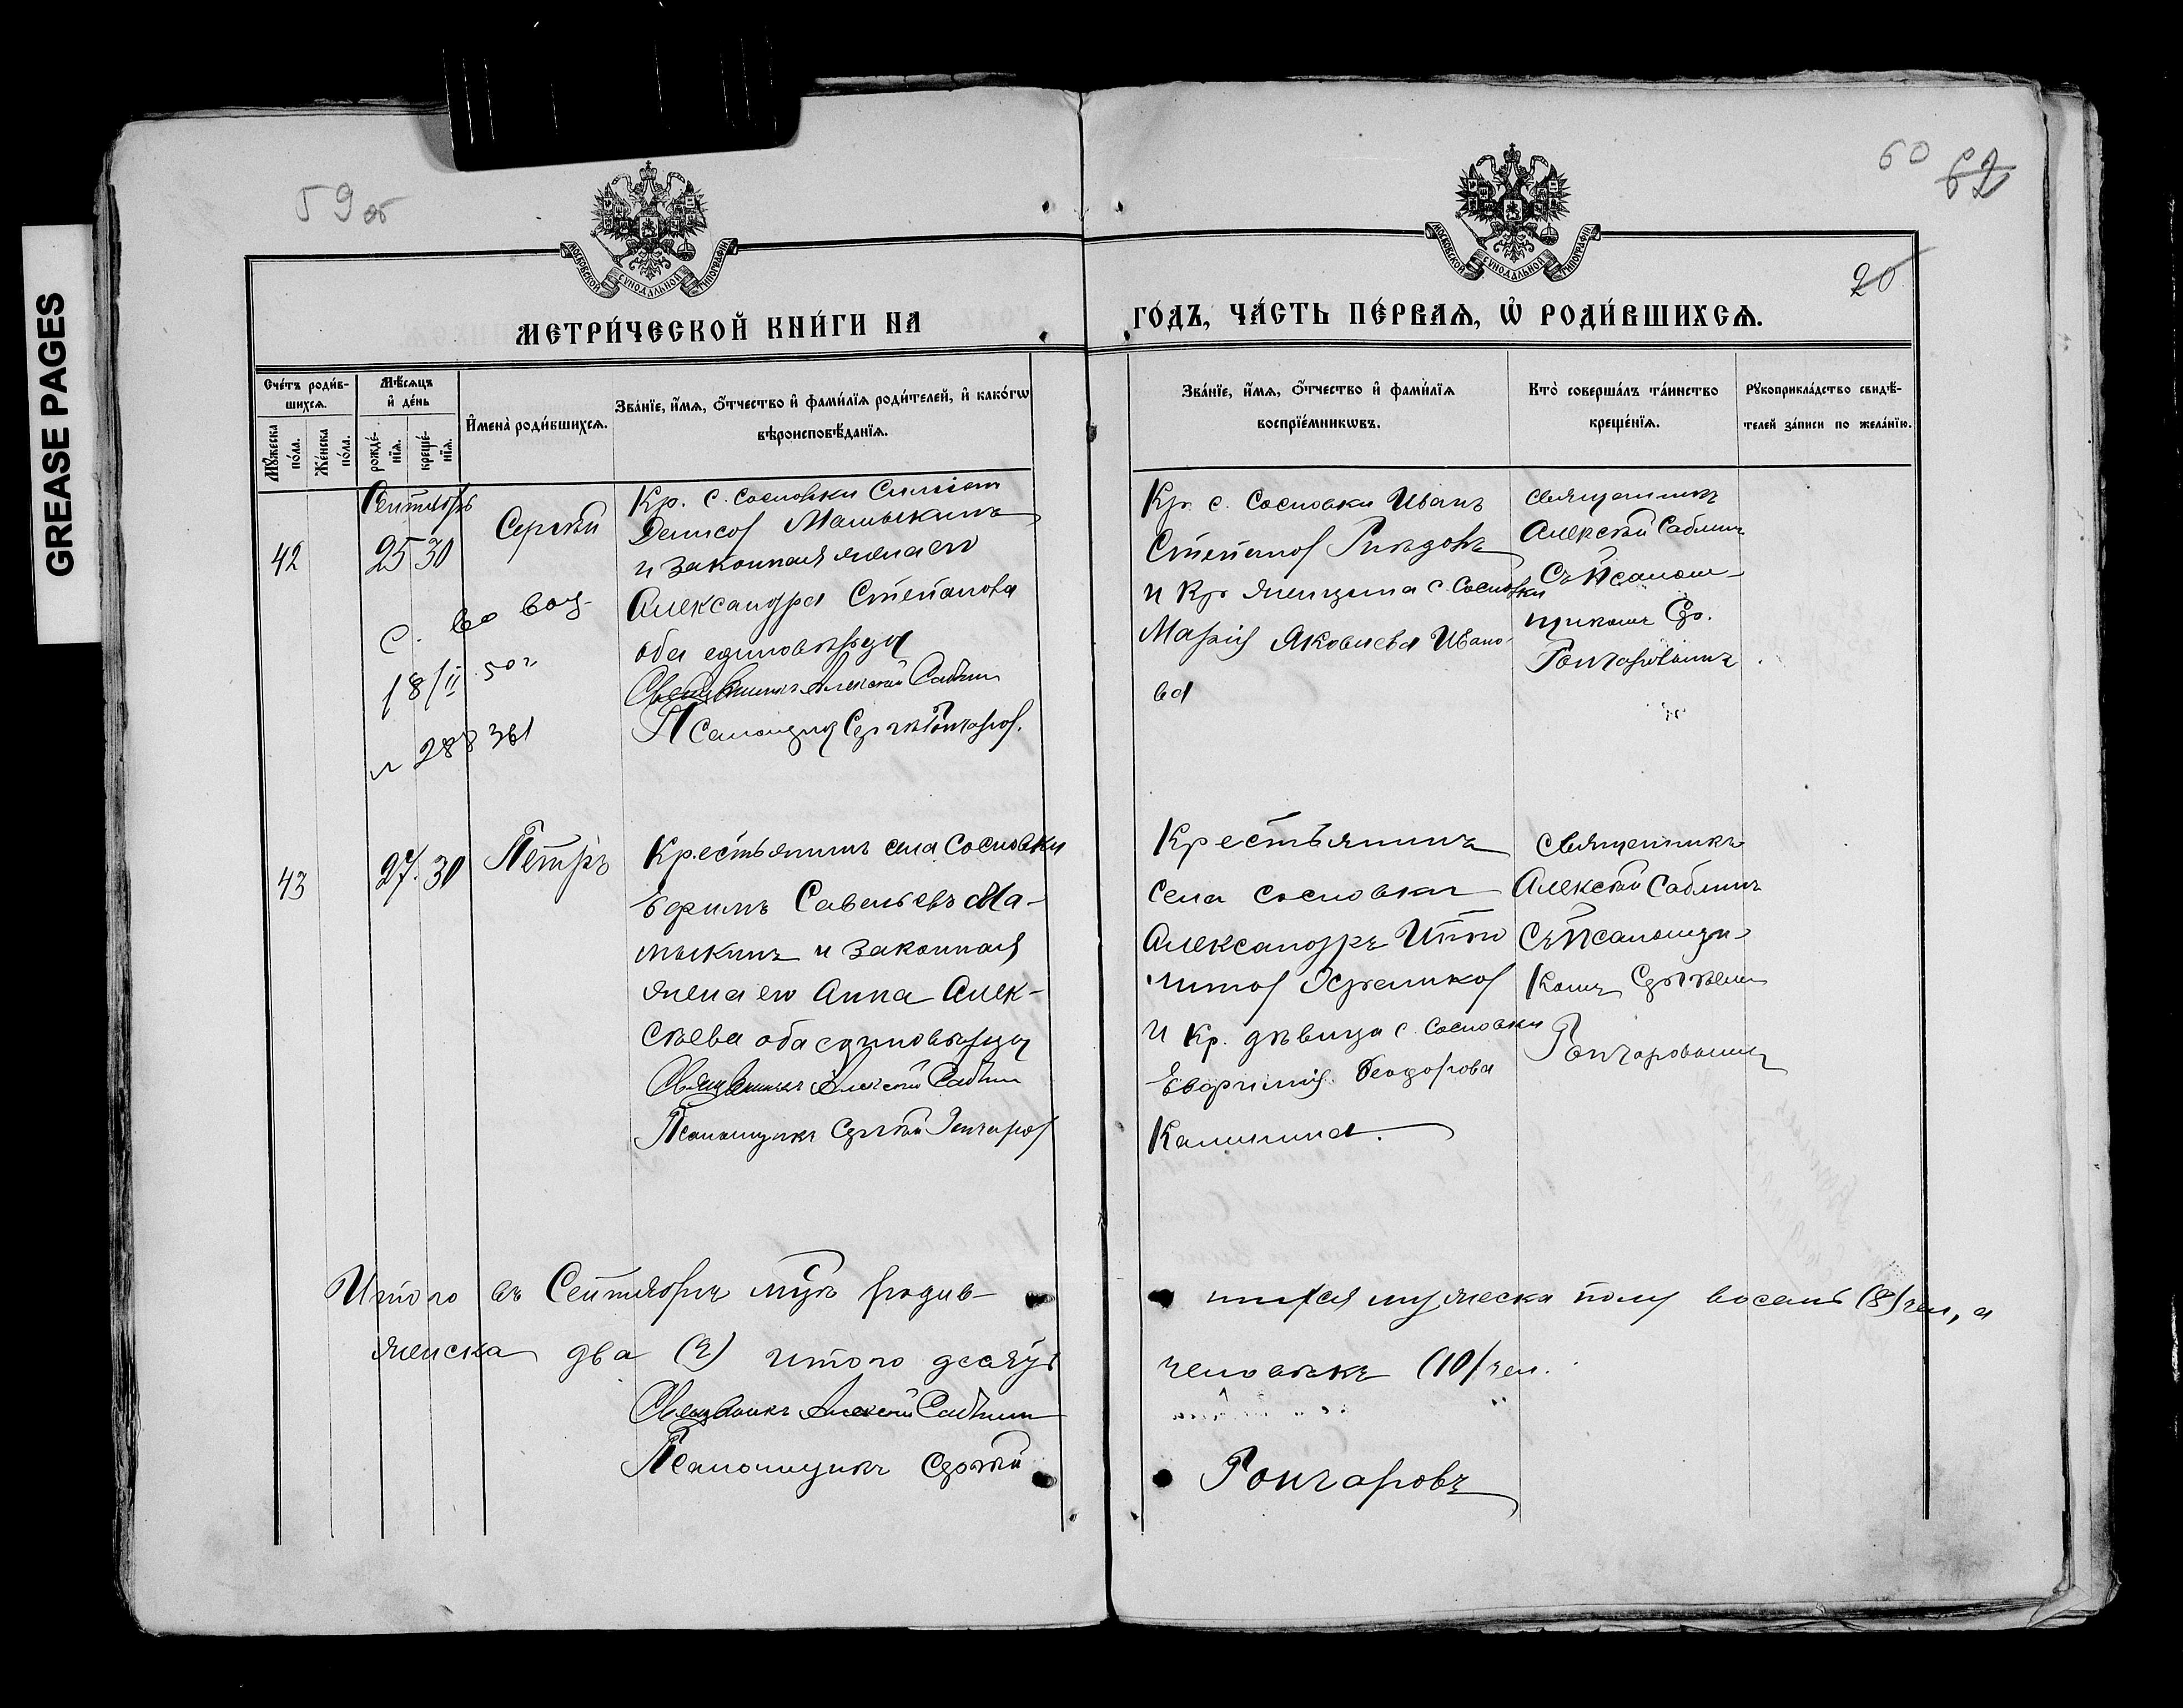 GREASE PAGES
59 об
60
62
20
МОСКОВСКОЙ СѴНОДАЛЬНОЙ ТИПОГРАФІИ
МОСКОВСКОЙ СѴНОДАЛЬНОЙ ТИПОГРАФІИ
МЕТРИ́ЧЕСКОЙ КНИ́ГИ НА
ГО́ДЪ, ЧА́СТЬ ПЕ́РВАѦ, Ѡ҆ РОДИ́ВШИХСѦ.
Сче́тъ роди́в-
шихсѧ.
Мꙋ́жеска по́ла.
Же́нска по́ла.
Мѣ́сѧцъ
и҆ де́нь
рожде́-нїѧ.
креще́-нїѧ.
И҆мена̀ роди́вшихсѧ.
Зва́нїе, и҆́мѧ, ѻ҆́тчество и҆ фами́лїѧ роди́телей, и҆ како́гѡ
вѣроисповѣ́данїѧ.
Зва́нїе, и҆́мѧ, ѻ҆́тчество и҆ фами́лїѧ
воспрїе́мникѡвъ.
Кто̀ соверша́лъ та́инство
креще́нїѧ.
Рꙋкоприкла́дство свидѣ́-
телей за́писи по жела́нїю.
Сентябрь
42
25 30
Сергѣй
с. Во воз
18/II 50 г
Кр. с. Сосновки
Денисов Мамыкинъ
и законная жена его
Александра Степанова
оба единовѣрцы
Священникъ Алексѣй Саблин
Псаломщик Сергѣй Гончаров.
Кр. с. Сосновки Иванъ
Степанов
и Кр. женщина с. Сосновки
Марія Яковлева Ивано-
ва
священникъ
Алексѣй Саблинъ
съ Псалом-
щикомъ Ср.
Гончаровымъ
43
27. 30
Петръ
Крестьянинъ села Сосновки
Ефимъ Савельевъ Ма-
мыкинъ и законная
жена его Анна Алек-
сѣева оба единовѣрцы
Священникъ Алексѣй Саблин
Псаломщикъ Сергѣй Гончаров
Крестьянинъ
села Сосновки
Александръ Иппо
литов
и Кр. дѣвица с. Сосновки
Евфимія Феодорова
Калинина.
священникъ
Алексѣй Саблинъ
съ Псаломщи-
комъ Сергѣемъ
Гончаровымъ
Итого въ Сентябрѣ мцѣ родив-
шихся мужеска полу восемь (8) чел., а
женска два (2) итого десять
человѣкъ (10) чел.
Священникъ Алексѣй Саблин
Псаломщикъ Сергѣй
Гончаровъ